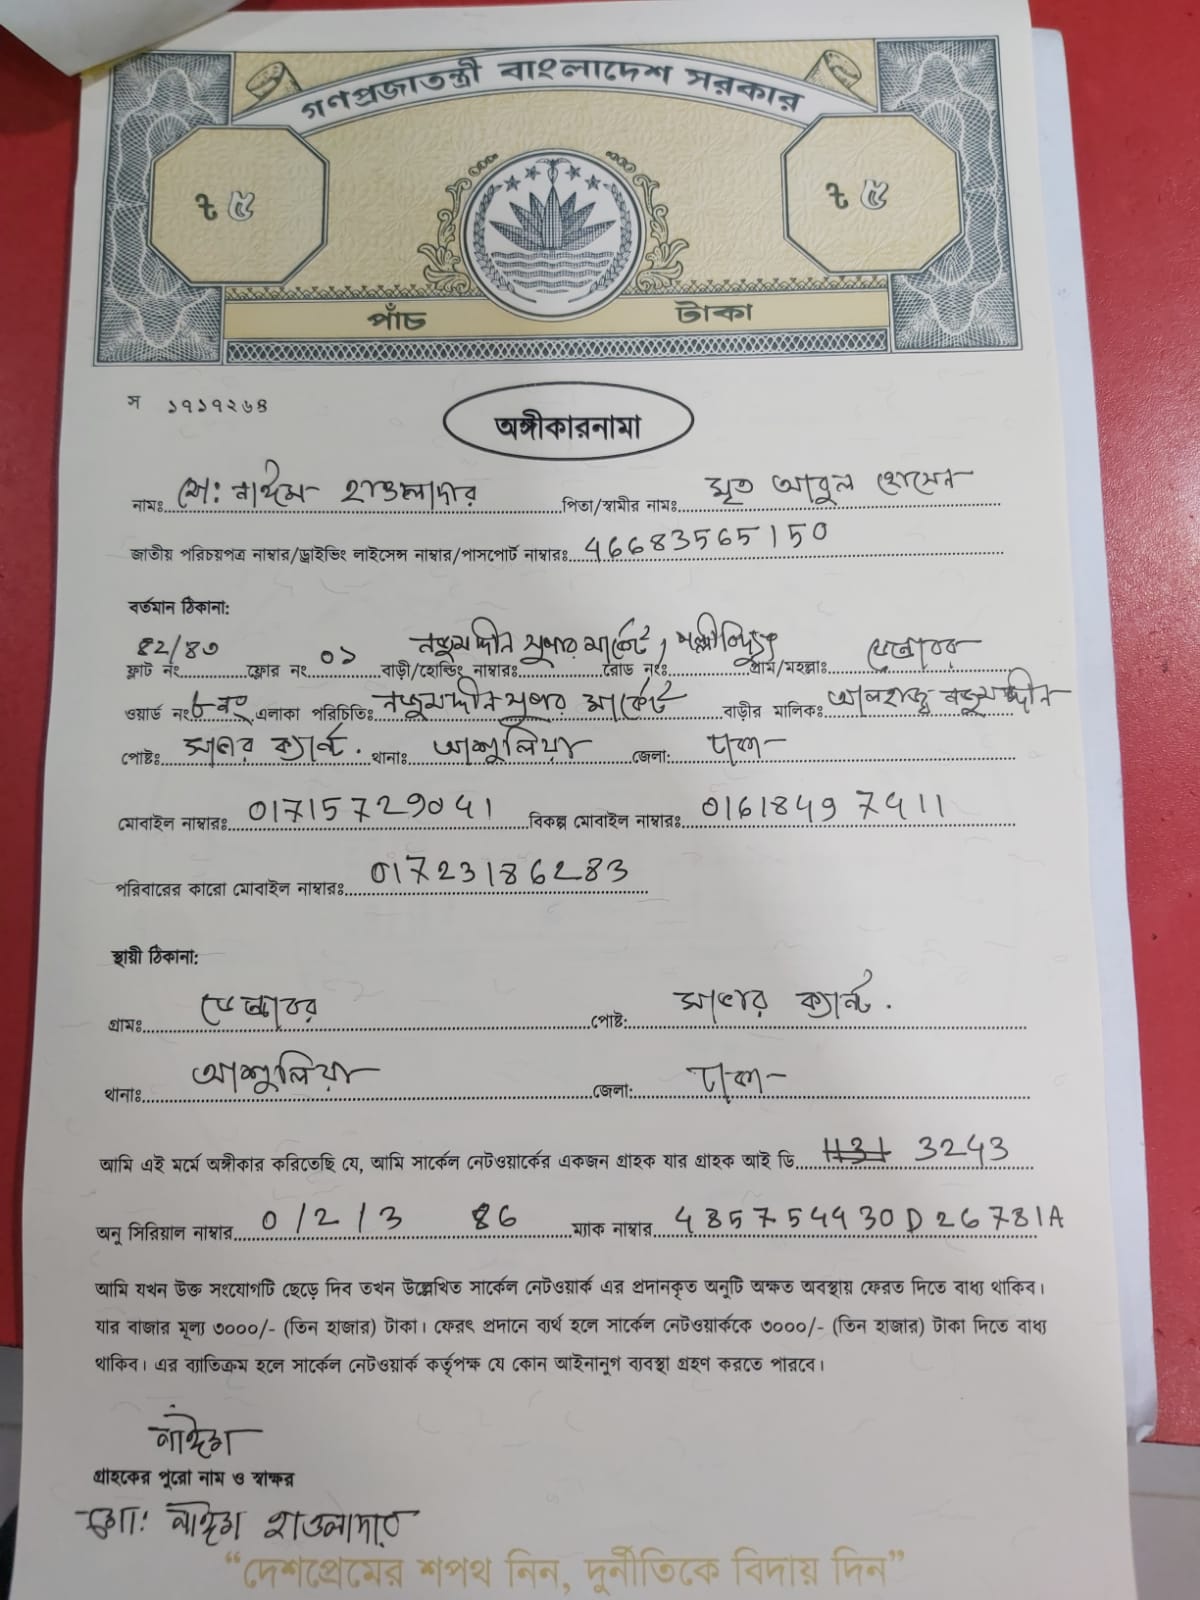 গণপ্রজাতন্ত্রী বাংলাদেশ সরকার
৳ ৫ ৳ ৫
পাঁচ টাকা
স ১৭১৭২৬৪
অঙ্গীকারনামা
নামঃ মো: নাঈম হাওলাদার পিতা/স্বামীর নামঃ মৃত আবুল হোসেন
জাতীয় পরিচয়পত্র নাম্বার/ড্রাইভিং লাইসেন্স নাম্বার/পাসপোর্ট নাম্বারঃ 46683565150
বর্তমান ঠিকানা:
ফ্লাট নং ৪২/৪৩ ফ্লোর নং ০১ বাড়ী/হোল্ডিং নাম্বারঃ নজুমদ্দীন সুপার মার্কেট, পল্লীবিদ্যুৎ রোড নং গ্রাম/মহল্লাঃ ডেন্ডাবর
ওয়ার্ড নং ৮ নং এলাকা পরিচিতিঃ নজুমদ্দীন সুপার মার্কেট বাড়ীর মালিকঃ আলহাজ্ব নজুমদ্দীন
পোষ্টঃ সাভার ক্যান্ট. থানাঃ আশুলিয়া জেলা: ঢাকা
মোবাইল নাম্বারঃ 01715729041 বিকল্প মোবাইল নাম্বারঃ 01618497411
পরিবারের কারো মোবাইল নাম্বারঃ 01723186283
স্থায়ী ঠিকানা:
গ্রামঃ ডেন্ডাবর পোষ্ট: সাভার ক্যান্ট.
থানাঃ আশুলিয়া জেলা: ঢাকা
আমি এই মর্মে অঙ্গীকার করিতেছি যে, আমি সার্কেল নেটওয়ার্কের একজন গ্রাহক যার গ্রাহক আই ডি 3243
অনু সিরিয়াল নাম্বার 0/2/3 86 ম্যাক নাম্বার 4857544930D26781A
আমি যখন উক্ত সংযোগটি ছেড়ে দিব তখন উল্লেখিত সার্কেল নেটওয়ার্ক এর প্রদানকৃত অনুটি অক্ষত অবস্থায় ফেরত দিতে বাধ্য থাকিব।
যার বাজার মূল্য ৩০০০/- (তিন হাজার) টাকা। ফেরৎ প্রদানে ব্যর্থ হলে সার্কেল নেটওয়ার্ককে ৩০০০/- (তিন হাজার) টাকা দিতে বাধ্য
থাকিব। এর ব্যাতিক্রম হলে সার্কেল নেটওয়ার্ক কর্তৃপক্ষ যে কোন আইনানুগ ব্যবস্থা গ্রহণ করতে পারবে।
নাঈম
গ্রাহকের পুরো নাম ও স্বাক্ষর
মো: নাঈম হাওলাদার
“দেশপ্রেমের শপথ নিন, দুর্নীতিকে বিদায় দিন”